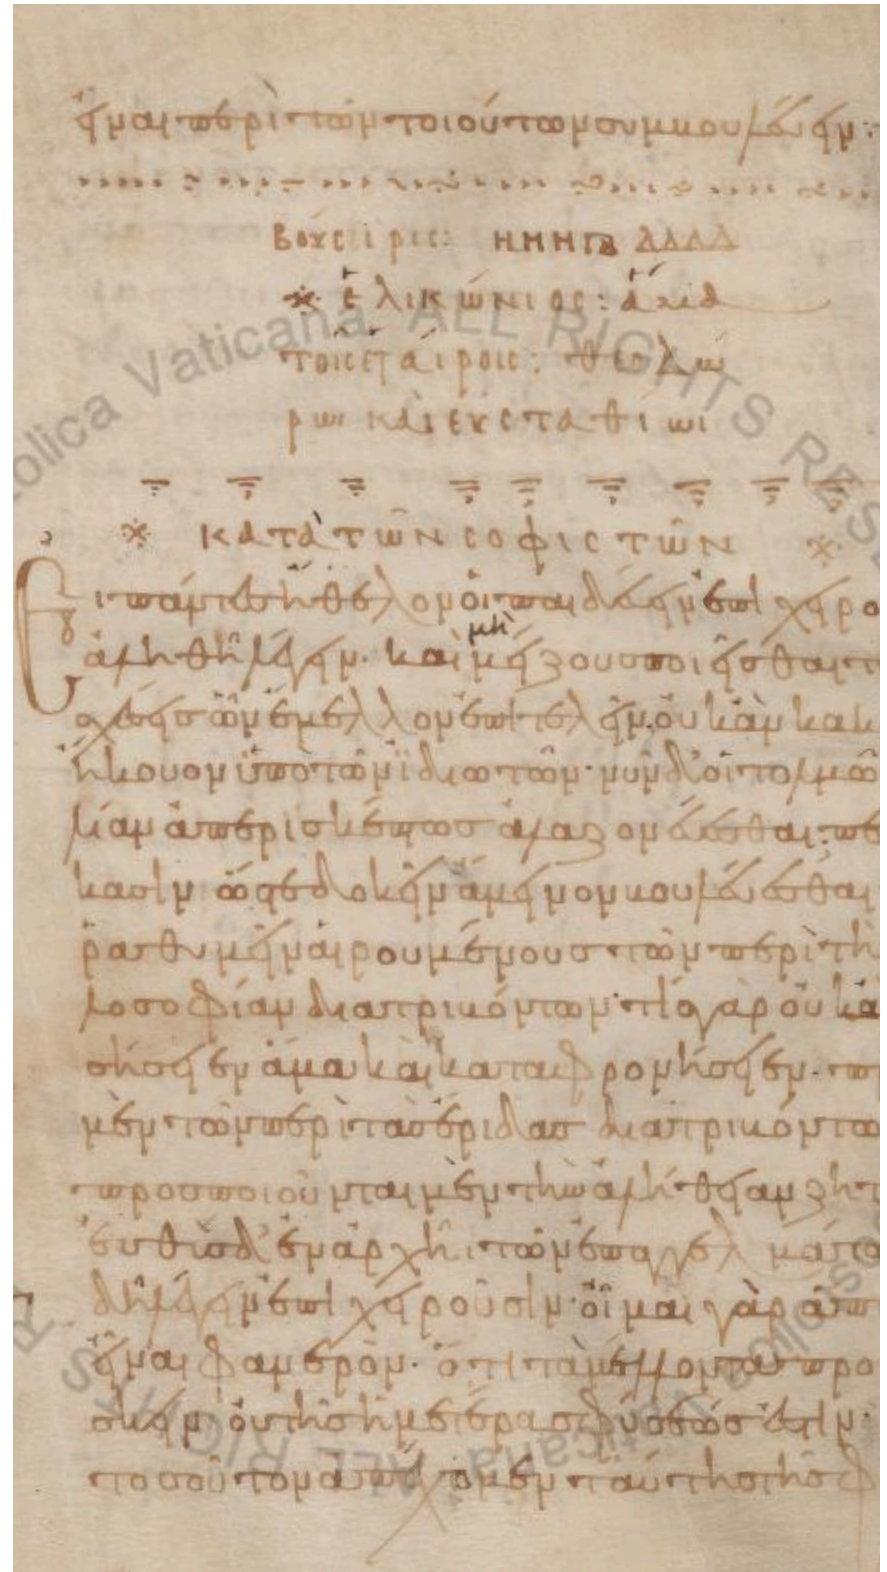 εἶναι περὶ τῶν τοιούτων συμβουλεύειν:
βούσιρις: ΗΗΗ𐅄ΔΔΔΔ
ἑλικώνιος: ἅμα
τοῖς ἑταίροις: θεοδώ
ρωι καὶ εὐσταθίωι
κατὰ τῶν σοφιστῶν
Εἰ πάντες ἤθελον οἱ παιδεύειν ἐπιχειρο
ἀληθῆ λέγειν· καὶ μὴ μείζους ποιεῖσθαι τ
σχέσεις ὧν ἔμελλον ἐπιτελεῖν, οὐκ ἂν κακ
ἤκουον ὑπὸ τῶν ἰδιωτῶν· νῦν δ' οἱ τολμῶ
λίαν ἀπερισκέπτως ἀλαζονεύεσθαι, πε
κασιν ὥστε δοκεῖν ἄμεινον βουλεύεσθαι
ῥαθυμεῖν αἱρουμένους τῶν περὶ τὴ
λοσοφίαν διατριβόντων· τίς γὰρ οὐκ ἂ
σήσειεν ἅμα καὶ καταφρονήσειεν· π
μὲν τῶν περὶ τὰς ἔριδας διατριβόντω
προσποιοῦνται μὲν τὴν ἀλήθειαν ζητ
εὐθὺς δ' ἐν ἀρχῆι τῶν ἐπαγγελμάτω
δῆ λέγειν ἐπιχειροῦσιν· οἶμαι γὰρ ἅπ
εἶναι φανερὸν· ὅτι τὰ μέλλοντα προ
σκειν· οὐ τῆς ἡμετέρας φύσεώς ἐστιν·
τοσοῦτον ἀπέχομεν ταύτης τῆς φ